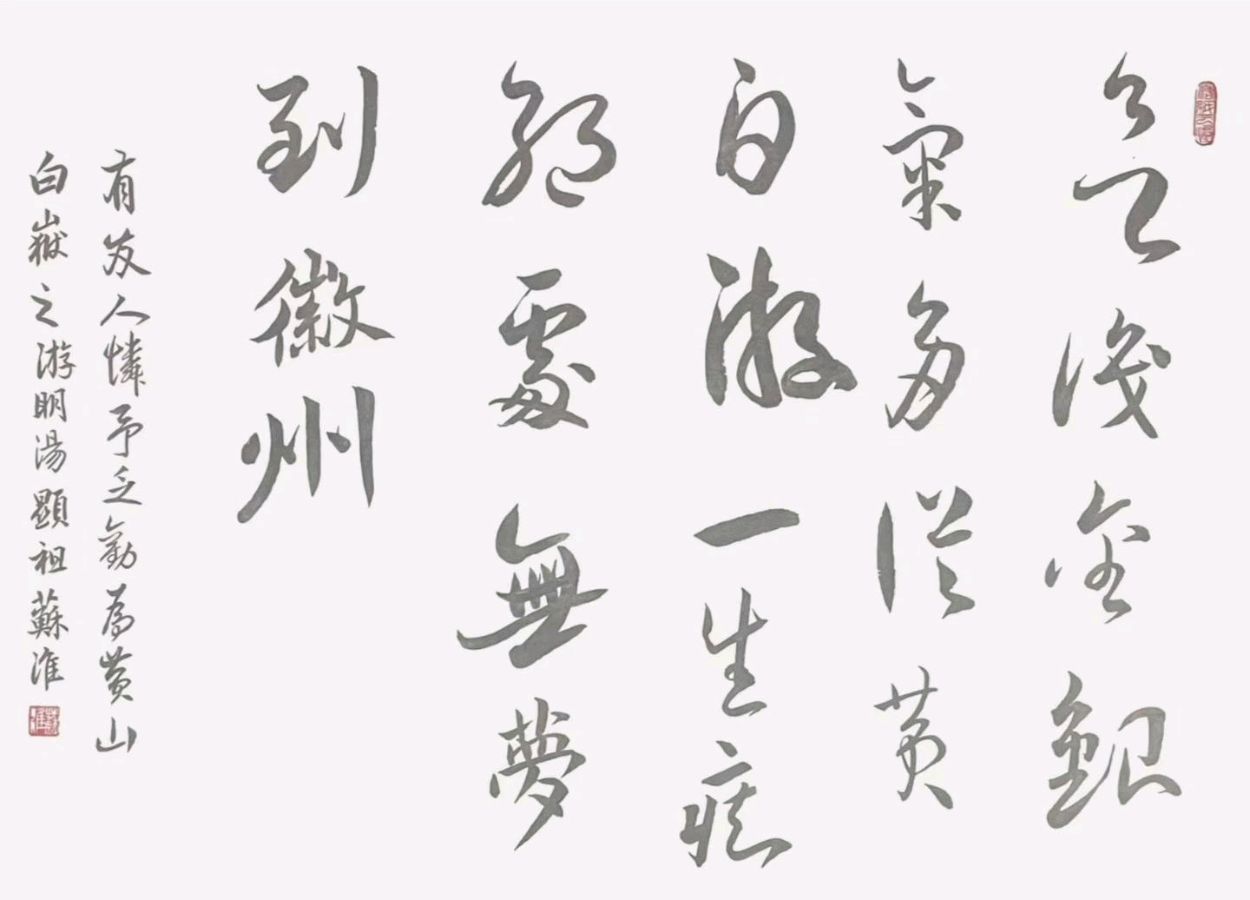 欲識金銀
氣多從黃
白游一生痴
絕處無夢
到徽州
有友人憐予乏勸為黃山
白嶽之游明湯顯祖蘇淮